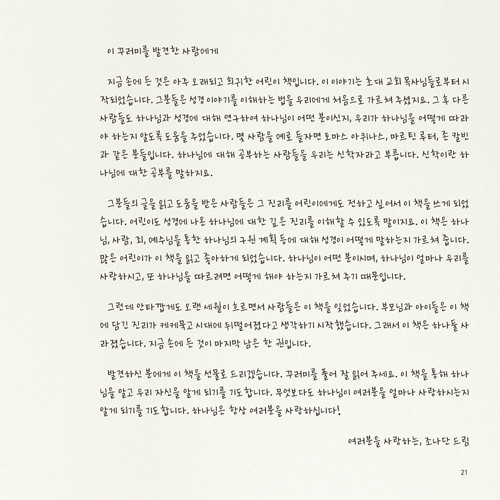 이 꾸러미를 발견한 사람에게
지금 손에 든 것은 아주 오래되고 희귀한 어린이 책입니다. 이 이야기는 초대 교회 목사님들로부터 시
작되었습니다. 그분들은 성경 이야기를 이해하는 법을 우리에게 처음으로 가르쳐 주셨지요. 그 후 다른
사람들도 하나님과 성경에 대해 연구하여 하나님이 어떤 분이신지, 우리가 하나님을 어떻게 따라
야 하는지 알도록 도움을 주었습니다. 몇 사람을 예로 들자면 토마스 아퀴나스, 마르틴 루터, 존 칼빈
과 같은 분들입니다. 하나님에 대해 공부하는 사람들을 우리는 신학자라고 부릅니다. 신학이란 하
나님에 대한 공부를 말하지요.
그분들의 글을 읽고 도움을 받은 사람들은 그 진리를 어린이에게도 전하고 싶어서 이 책을 쓰게 되었
습니다. 어린이도 성경에 나온 하나님에 대한 깊은 진리를 이해할 수 있도록 말이지요. 이 책은 하나
님, 사람, 죄, 예수님을 통한 하나님의 구원 계획 등에 대해 성경이 어떻게 말하는지 가르쳐 줍니다.
많은 어린이가 이 책을 읽고 좋아하게 되었습니다. 하나님이 어떤 분이시며, 하나님이 얼마나 우리를
사랑하시고, 또 하나님을 따르려면 어떻게 해야 하는지 가르쳐 주기 때문입니다.
그런데 안타깝게도 오랜 세월이 흐르면서 사람들은 이 책을 잊었습니다. 부모님과 아이들은 이 책
에 담긴 진리가 케케묵고 시대에 뒤떨어졌다고 생각하기 시작했습니다. 그래서 이 책은 하나둘 사
라졌습니다. 지금 손에 든 것이 마지막 남은 한 권입니다.
발견하신 분에게 이 책을 선물로 드리겠습니다. 꾸러미를 풀어 잘 읽어 주세요. 이 책을 통해 하나
님을 알고 우리 자신을 알게 되기를 기도합니다. 무엇보다도 하나님이 여러분을 얼마나 사랑하시는지
알게 되기를 기도합니다. 하나님은 항상 여러분을 사랑하십니다!
여러분을 사랑하는, 조나단 드림
21